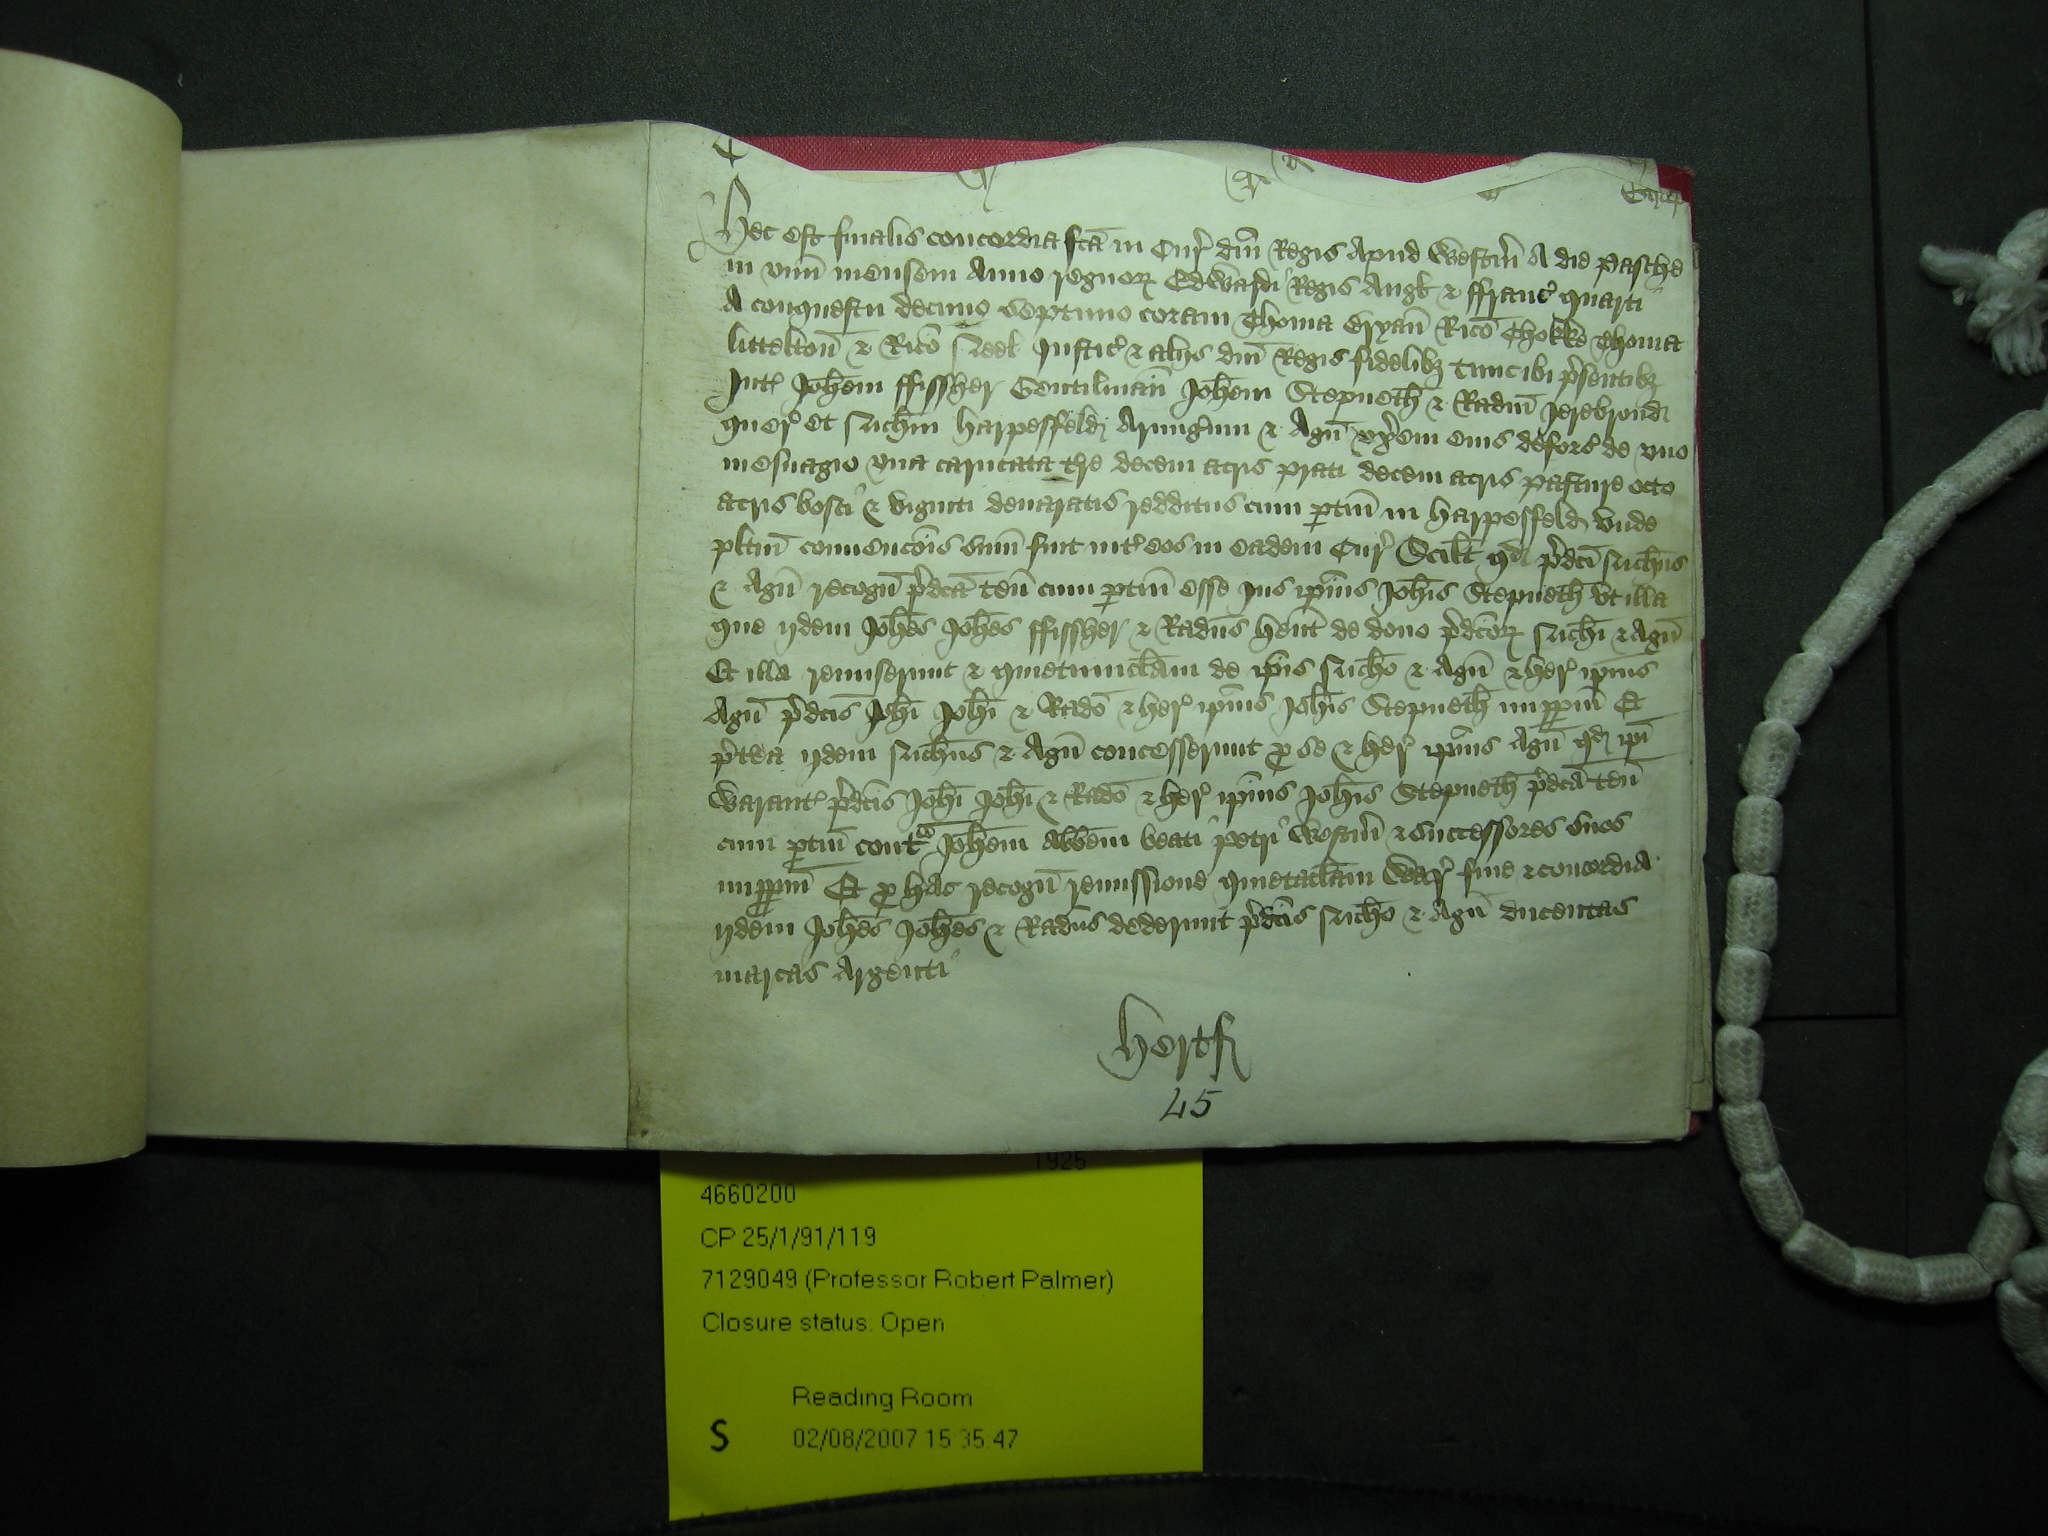 Hec est finalis concordia fcā in Cur' dm̄ Regis Apud Westm̄ A die pasche
in vnū mensem Anno regnoꝝ Edwardi Regis Angl' & ffranc' quarti
A conquestu decimo septimo coram Thoma Bryan̄ Ric̄o Chokke Thoma
littelton̄ & Ric̄o Neel Justic' & alijs dm̄ Regis fidelibꝫ tunc ibi p'sentibꝫ
Int' Joh̄em ffissher Gentilman̄ Joh̄em Stepneth̄ & Radm̄
quer' et Nich̄m harpesfeld Armig'um & Agn̄ vx'em eius deforc' de vno
mesuagio vna carucata t're decem acris prati decem acris pasture octo
acris bosci & viginti denaratis redditus cum ptin̄ in harpesfeld vnde
pl̄itm̄ convenc̄ois sum̄ fuit int' eos in eadem Cur' Scil't qd' p'dc̄i Nich̄us
& Agn̄ recogn̄ p'dc̄a ten̄ cum ptin̄ esse Jus ip̄ius Joh̄is Stepneth̄ vt illa
que ijdem Joh̄es Joh̄es ffissher & Radūs h̄ent de dono p'dc̄oꝝ Nich̄i & Agn̄
Et illa remiserunt & quietumclam̄ de ip̄is Nich̄o & Agn̄ & her' ip̄ius
Agn̄ p'dc̄is Joh̄i Joh̄i & Rad̄o & her' ip̄ius Joh̄is Stepneth̄ imppm̄ Et
p't'ea ijdem Nich̄us & Agn̄ concesserunt p se & her' ip̄ius Agn̄ qd' ip̄i
Warant' p'dc̄is Joh̄i Joh̄i & Rad̄o & her' ip̄ius Joh̄is Stepneth̄ p'dc̄a ten̄
cum ptin̄ contᵃ Joh̄em Abb̄em beati petri Westm̄ & successores suos
imppm̄ Et p hac recogn̄ remissione quietaclam̄ War' fine & concordia
ijdem Joh̄es Joh̄es & Radūs dederunt p'dc̄is Nich̄o & Agn̄ ducentas
marcas Argenti
Hertf
45
1925
4660200
CP 25/1/91/119
7129049 (Professor Robert Palmer)
Closure status: Open
Reading Room
S 02/08/2007 15:35:47